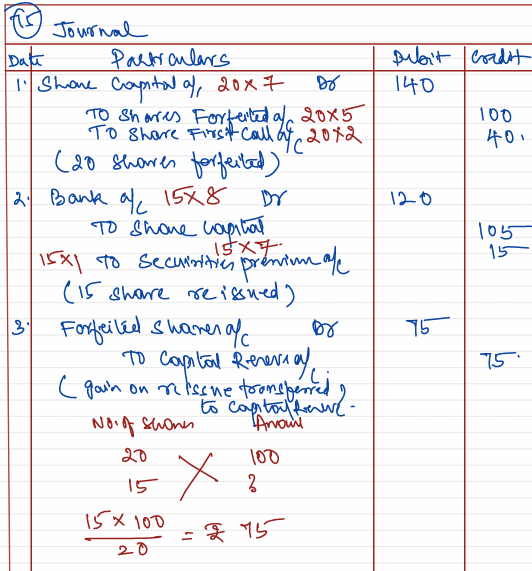 15 Journal
Date Particulars Debit Credit
1. Share Capital a/c 20×7 Dr 140
To Shares Forfeited a/c 20×5 100
To Share First Call a/c 20×2 40.
(20 shares forfeited)
2. Bank a/c 15×8 Dr 120
To Share Capital 105
15×7.
15×1 To Securities premium a/c 15
(15 share reissued)
3. Forfeited Shares a/c Dr 75
To Capital Reserve a/c. 75.
(gain on reissue transferred)
to Capital Reserve.
No. of Shares Amount
20 100
15 ?
15 × 100 / 20 = ₹ 75